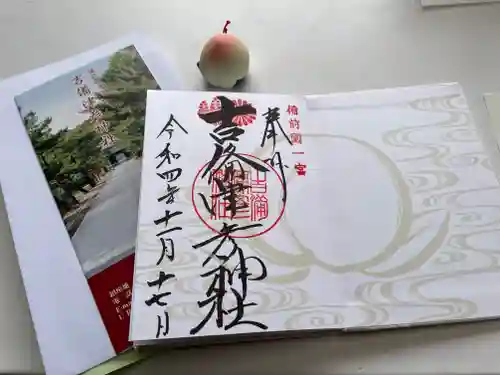 備前國一宮
奉拝
吉備津彦神社
令和四年十一月十七日
吉備津彦神社